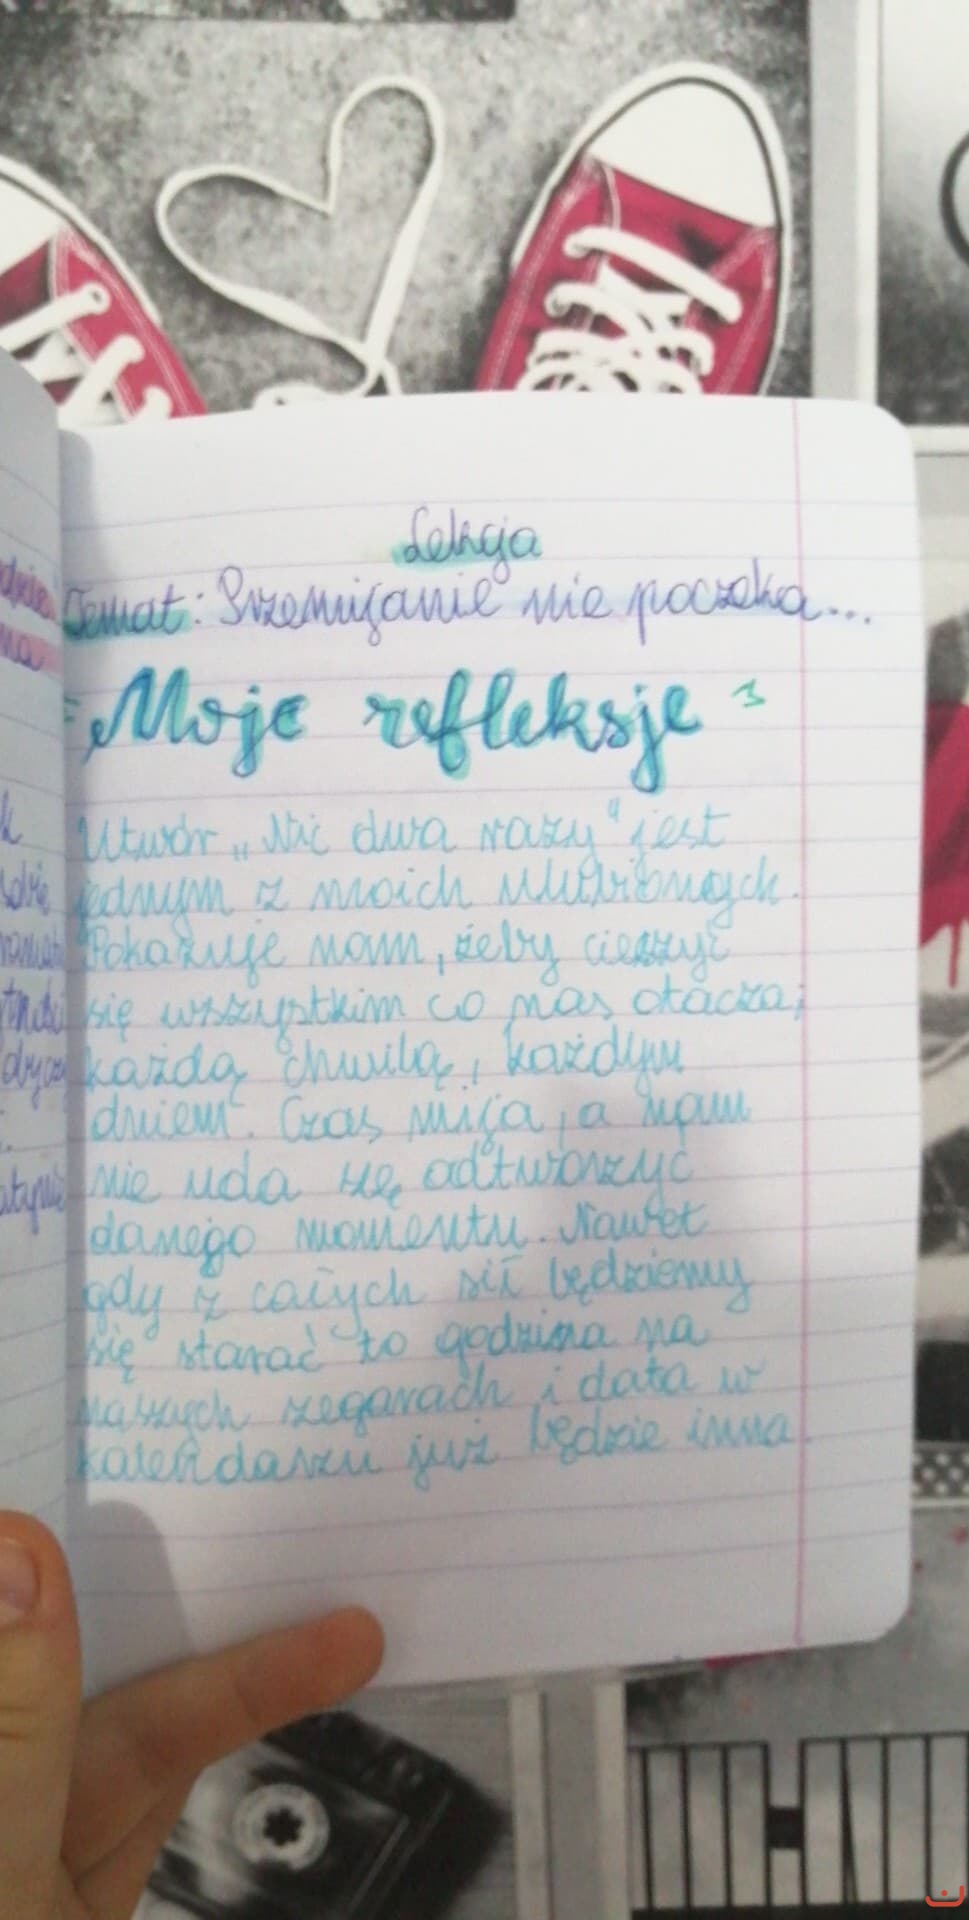 Lekcja
Temat: Przemijanie nie poczeka...
Moje refleksje
Utwór „Nic dwa razy" jest
jednym z moich ulubionych.
Pokazuje nam, żeby cieszyć
się wszystkim co nas otacza;
każdą chwilą, każdym
dniem. Czas mija, a nam
nie uda się odtworzyć
danego momentu. Nawet
gdy z całych sił będziemy
się starać to godzina na
naszych zegarach i data w
kalendarzu już będzie inna.